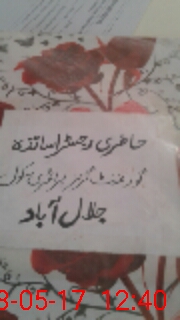 حاضری رجسٹر اساتذہ
گورنمنٹ گرلز پرائمری سکول
جلال آباد
8-05-17 12:40